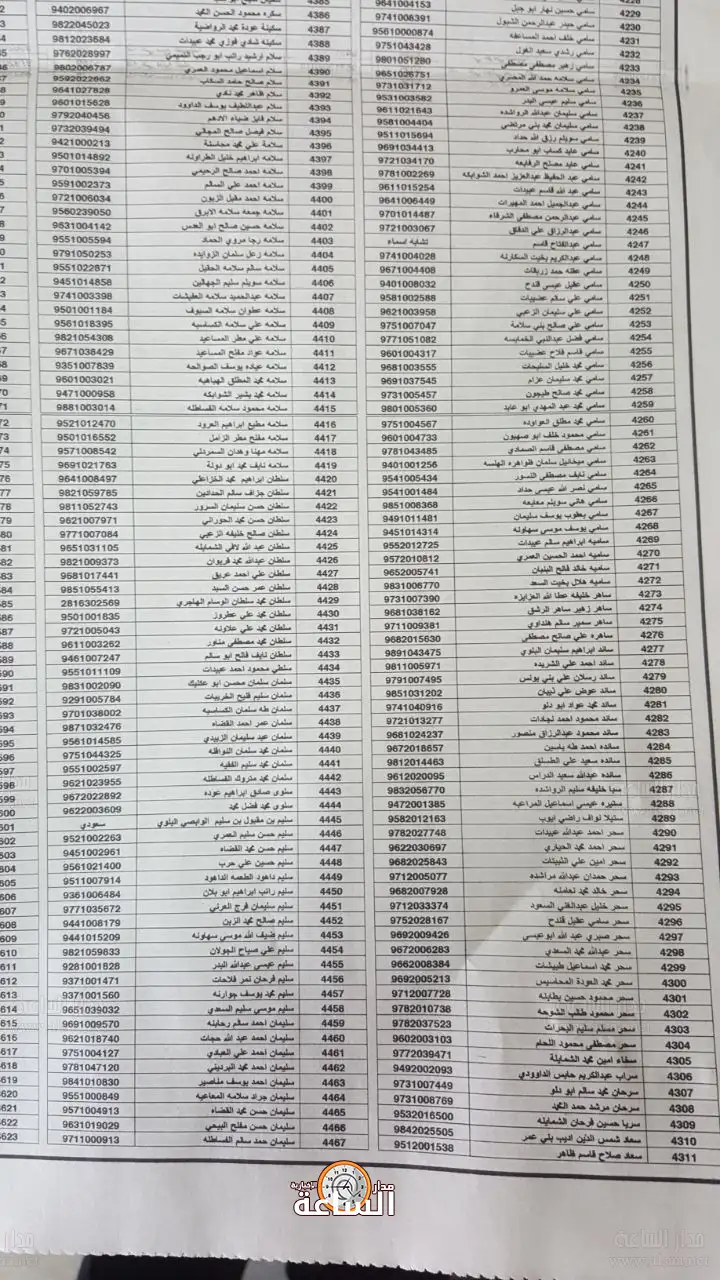 4229 سامي حسين نهار ابو جبل 9641004153
4230 سامي حيدر عبدالرحمن الشبول 9741008391
4231 سامي خلف احمد المساعفه 95610000874
4232 سامي رشدي سعيد الغول 9751043428
4233 سامي زهير مصطفى مصطفى 9801051280
4234 سامي سلامه حمد الله 9651026751
4235 سامي سلامه موسى العمرو 9731031712
4236 سامي سليم عيسى البدر 9531003582
4237 سامي سليمان عبدالله الرواشده 9611021643
4238 سامي سليمان محمد بني مرتضى 9581004404
4239 سامي سويلم رزق الله حداد 9511015694
4240 سامي عايد كساب ابو محارب 9691034413
4241 سامي عايد مصلح الرفايعه 9721034170
4242 سامي عبد الحفيظ عبدالعزيز احمد الشوابكه 9781002269
4243 سامي عبد الله قاسم عبيدات 9611015254
4244 سامي عبدالجميل احمد المهيرات 9641006449
4245 سامي عبدالرحمن مصطفى الشرفاء 9701014487
4246 سامي عبدالرزاق علي الدقاق 9721003067
4247 سامي عبدالفتاح قاسم تشابه اسماء
4248 سامي عبدالكريم بخيت السكارنه 9741004028
4249 سامي عقله حمد زريقات 9671004408
4250 سامي عقيل عيسى قندح 9401008032
4251 سامي علي سالم عضيبات 9581002588
4252 سامي علي سليمان الزعبي 9621003958
4253 سامي علي صالح بني سلامة 9751007047
4254 سامي فضل عبدالنبي الخمايسه 9771051082
4255 سامي قاسم فلاح عضيبات 9601004317
4256 سامي محمد خليل السليحات 9681003555
4257 سامي محمد سليمان عزام 9691037545
4258 سامي محمد صالح طيجون 9731005457
4259 سامي محمد عبد المهدي ابو عابد 9801005360
4260 سامي محمد مطلق العواوده 9751004567
4261 سامي محمود خلف ابو صهيون 9601004733
4262 سامي مصطفى قاسم الصمادي 9781043485
4263 سامي ميخائيل سلمان قلواهره الهلسه 9401001256
4264 سامي نايف مصطفى النسور 9541005434
4265 سامي نصر الله عيسى حداد 9541001484
4266 سامي هاني سويلم معايعه 9851008368
4267 سامي يعقوب يوسف سليمان 9491011481
4268 سامي يوسف موسى سهاونه 9451014314
4269 ساميه ابراهيم سالم عبيدات 9552012725
4270 ساميه احمد الحسين العمري 9572010812
4271 ساميه خالد فالح البلبان 9652005741
4272 ساميه هلال بخيت السعد 9831006770
4273 ساهر خليفه عطا الله العزايزه 9731007390
4274 ساهر زهير ساهر الرشق 9681038162
4275 ساهر سمير سالم هنداوي 9711009381
4276 ساهره علي صالح مصطفى 9682015630
4277 سائد ابراهيم سليمان البلوي 9891043475
4278 سائد احمد علي الشريده 9811005971
4279 سائد رسلان علي بني يونس 9791007495
4280 سائد عوض علي ذيبان 9851031202
4281 سائد محمد عواد ابو دلو 9741040916
4282 سائد محمود احمد لجادات 9721013277
4283 سائد محمود عبدالرزاق منصور 9681024237
4284 سائده احمد طه ياسين 9672018657
4285 سائده سعيد علي الطستق 9812014463
4286 سائده عبدالله سعيد الدراس 9612020095
4287 سبا خليفه سليم الرواشده 9832056770
4288 ستيره عيسى اسماعيل المراعبه 9472001385
4289 ستيلا نواف راضي ايوب 9582012163
4290 سحر احمد عبدالله عبيدات 9782027748
4291 سحر احمد محمد الحياري 9622030697
4292 سحر امين علي الثبيتات 9682025843
4293 سحر حمدان عبدالله مراشده 9712005077
4294 سحر خالد محمد نعامنه 9682007928
4295 سحر خليل عبدالغني السعود 9712033374
4296 سحر سامي عقيل قندح 9752028167
4297 سحر صبري عبد الله ابوعيسى 9692009426
4298 سحر عبدالله محمد السعدي 9672006283
4299 سحر محمد اسماعيل طبيشات 9662008384
4300 سحر محمد العودة المحاسيس 9692005213
4301 سحر محمود حسين بطاينه 9712007728
4302 سحر محمود طالب الشوحه 9782010738
4303 سحر مسلم سليم البحرات 9782037523
4304 سحر مصطفى محمود اللحام 9602003103
4305 سخاء امين محمد الشمايلة 9772039471
4306 سراب عبدالكريم حابس الداوودي 9492002093
4307 سرحان محمد سالم ابو دلو 9731007449
4308 سرحان مرشد حمد المحمد 9731008769
4309 سريا حسين فرحان الشمايله 9532016500
4310 سعاد شمس الدين اديب بلي عمر 9842025505
4311 سعاد صلاح قاسم ظاهر 9512001538
4386 سكره محمود الحسن المحمد 9402006967
4387 سكينة عودة محمد الرواضية 9822045023
4388 سكينه شادي فوزي محمد عبيدات 9812023684
4389 سلام ارشيد راتب ابو رجب التميمي 9762028997
4390 سلام اسماعيل محمود العمري 9802006787
4391 سلام صالح حامد 9592022862
4392 سلام ظاهر محمد نادي 9641027828
4393 سلام عبداللطيف يوسف الداوود 9601015628
4394 سلام فايز ضياء الادهم 9792040456
4395 سلام فيصل صالح المجالي 9732039494
4396 سلامة علي محمد محاسنة 9421000213
4397 سلامه ابراهيم خليل الطراونه 9501014892
4398 سلامه احمد صالح الرحيمي 9701005394
4399 سلامه احمد علي السالم 9591002373
4400 سلامه احمد مقبل الزيون 9721006034
4401 سلامه جمعه سلامه الابرق 9560239050
4402 سلامه حسين صالح ابو العدس 9631004142
4403 سلامه رجا مروي الحماد 9551005594
4404 سلامه زعل سلمان الزوايده 9791050253
4405 سلامه سالم سلامه الحقيل 9551022871
4406 سلامه سويلم سليم الجهالين 9451014858
4407 سلامه عبدالحميد سلامه العفيشات 9741003398
4408 سلامه عطوان سلامه السيوف 9501001184
4409 سلامه علي سلامه الكساسبه 9561018395
4410 سلامه علي مطر المساعيد 9821054308
4411 سلامه عواد مفلح المساعيد 9671038429
4412 سلامه عياده يوسف الصوالحه 9351007839
4413 سلامه محمد المطلق الهباهبه 9601003021
4414 سلامه محمد بشير الشوابكه 9471000958
4415 سلامه محمود سلامه القساطله 9881003014
4416 سلامه مطيع ابراهيم العرود 9521012470
4417 سلامه مفلح مطر الزامل 9501016552
4418 سلامه مهنا وهدان السمردلي 9571008542
4419 سلامه نايف محمد ابو دولة 9691021763
4420 سلطان ابراهيم محمد الخزاعلي 9641008497
4421 سلطان جزاف سالم الحدادين 9821059785
4422 سلطان حسن سليمان السرور 9811052743
4423 سلطان حسن محمد الحوراني 9621007971
4424 سلطان صالح خليفه الزعبي 9771007084
4425 سلطان عبد الله لافي الشمايله 9651031105
4426 سلطان عبدالله محمد فريوان 9821009373
4427 سلطان علي احمد عريق 9681017441
4428 سلطان عمر حسن السيد 9851055413
4429 سلطان محمد سلطان الوسام الهاجري 2816302569
4430 سلطان محمد علي عطروز 9501001835
4431 سلطان محمد علي علاونه 9721005043
4432 سلطان محمد مصطفى مناور 9611003262
4433 سلطان نايف فالح ابو سالم 9461007247
4434 سلطي محمود احمد عبيدات 9551011109
4435 سلمان سلمان محسن ابو عكليك 9831002090
4436 سلمان سليم فليح الخريبات 9291005784
4437 سلمان طه سلمان الكساسبه 9701038002
4438 سلمان عمر احمد القضاه 9871032476
4439 سلمان عيد سليمان الزبيدي 9561014585
4440 سلمان محمد سلمان النوافله 9751044325
4441 سلمان محمد سليم الفقيه 9551002597
4442 سلمان محمد متروك القساطله 9621023955
4443 سلوى صادق ابراهيم عوده 9672022892
4444 سلوى محمد فضل محمد 9622003609
4445 سليم بن مقبول بن سليم الوابصي البلوي سعودي
4446 سليم حسن سليم العمري 9521002263
4447 سليم حسن محمد القضاه 9451002961
4448 سليم حسين علي حرب 9561021400
4449 سليم داهود الطعمه الداهود 9511007914
4450 سليم راتب ابراهيم ابو بلان 9361006484
4451 سليم سليمان فرح العرني 9771035672
4452 سليم صالح محمد الزبن 9441008179
4453 سليم ضيف الله موسى سهاونه 9441015209
4454 سليم علي صباح الجولان 9821059833
4455 سليم عيسى عبدالله البدر 9281001828
4456 سليم فرحان نمر فلاحات 9371001471
4457 سليم محمد يوسف جوارنه 9371001560
4458 سليم موسى سليم السعدي 9651039032
4459 سليمان احمد سالم رحابنه 9691009570
4460 سليمان احمد عبد الله حجات 9621018740
4461 سليمان احمد علي العبادي 9751004127
4462 سليمان احمد محمد البرديني 9781047120
4463 سليمان احمد يوسف مناصير 9841010830
4464 سليمان جراد سلامه المعاعيه 9551000849
4465 سليمان حسن محمد القضاه 9571004913
4466 سليمان حسن مفلح البيحي 9631019029
4467 سليمان حمد سالم القساطله 9711000913
مدار الساعة الإخبارية